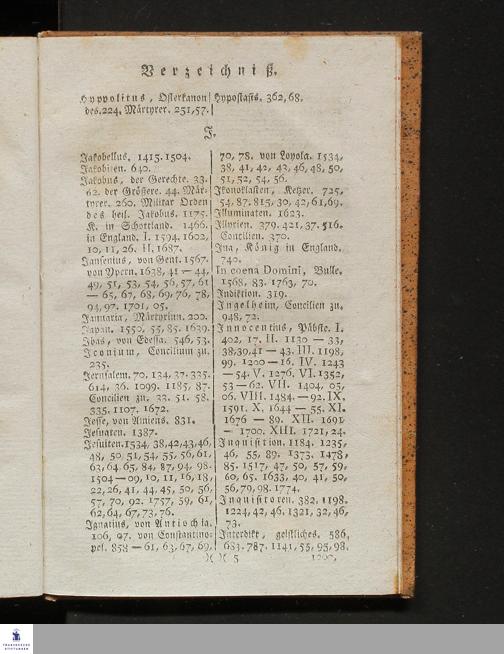 Verzeichniß.
Hyppolitus, Osterkanon
des. 224. Märtyrer. 251, 57.
Hypostasis. 362, 68.
J.
Jakobellus. 1415. 1504.
Jakobiten. 640.
Jakobus, der Gerechte. 33.
62. der Größere. 44. Mär-
tyrer. 260. Militar Orden
des heil. Jakobus. 1175.
K. in Schottland. 1466.
in England. I. 1594. 1602,
10, 11, 26. II. 1687.
Jansenius, von Gent. 1567.
von Ypern. 1638, 41 — 44,
49, 51, 53, 54, 56, 57, 61
— 65, 67, 68, 69, 76, 78,
94, 97. 1701, 05.
Januaria, Märtyrinn. 200.
Japan. 1550, 55, 85. 1639.
Ibas, von Edessa. 546, 53.
Iconium, Concilium zu.
235.
Jerusalem. 70. 134. 37. 335.
614, 36. 1099. 1185, 87.
Concilien zu. 33. 51. 58.
335. 1107. 1672.
Jesse, von Amiens. 831.
Jesuaten. 1387.
Jesuiten. 1534, 38, 42, 43, 46,
48, 50, 51, 54, 55, 56, 61,
63, 64, 65, 84, 87, 94, 98.
1504 — 09, 10, 11, 16, 18,
22, 26, 41, 44, 45, 50, 56,
57, 70, 92. 1757, 59, 61,
62, 64, 67, 73, 76.
Ignatius, von Antiochia.
106, 07. von Constantino-
pel. 858 — 61, 63, 67, 69,
70, 78. von Loyola. 1534,
38, 41, 42, 43, 46, 48, 50,
51, 52, 54, 56.
Ikonoklasten, Ketzer. 725,
54. 87. 815, 30, 42, 61, 69.
Illuminaten. 1623.
Illyrien. 379. 421, 37. 516.
Concilien. 370.
Ina, König in England.
740.
In coena Domini, Bulle.
1568, 83. 1763, 70.
Indiktion. 319.
Ingelheim, Concilien zu.
948, 72.
Innocentius, Päbste. I.
402, 17. II. 1130 — 33,
38, 39, 41 — 43. III. 1198,
99. 1200 — 16. IV. 1243
— 54. V. 1276. VI. 1352,
53 — 62. VII. 1404, 05,
06. VIII. 1484. — 92. IX.
1591. X. 1644 — 55. XI.
1676 — 89. XII. 1691
— 1700. XIII. 1721, 24.
Inquisition. 1184. 1235,
46, 55, 89. 1373. 1478,
85. 1517, 47, 50, 57, 59,
60, 65. 1633, 40, 41, 50,
56, 79, 98. 1774.
Inquisitoren. 382. 1198.
1224, 42, 46. 1321, 32, 46,
73.
Interdikt, geistliches. 586,
683. 787. 1141, 55, 95, 98.
N N 5
1200,